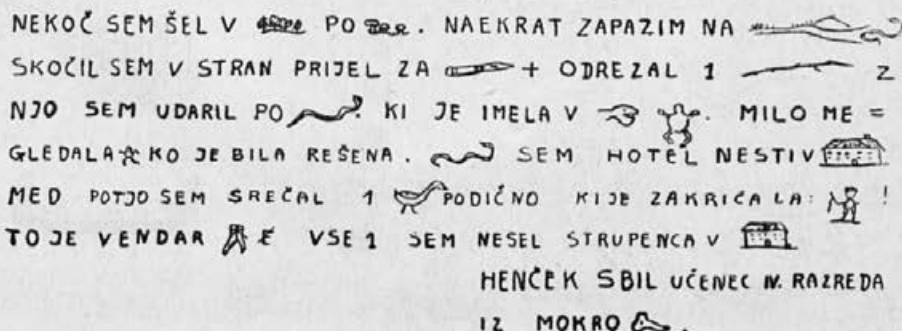 NEKOČ SEM ŠEL V PO . NAEKRAT ZAPAZIM NA
SKOČIL SEM V STRAN PRIJEL ZA + ODREZAL 1 Z
NJO SEM UDARIL PO . KI JE IMELA V . MILO ME =
GLEDALA KO JE BILA REŠENA . SEM HOTEL NESTI V
MED POTJO SEM SREČAL 1 PODIČNO KI JE ZAKRIČALA: !
TO JE VENDAR E VSE 1 SEM NESEL STRUPENCA V
HENČEK SBIL UČENEC IV. RAZREDA
IZ MOKRO .